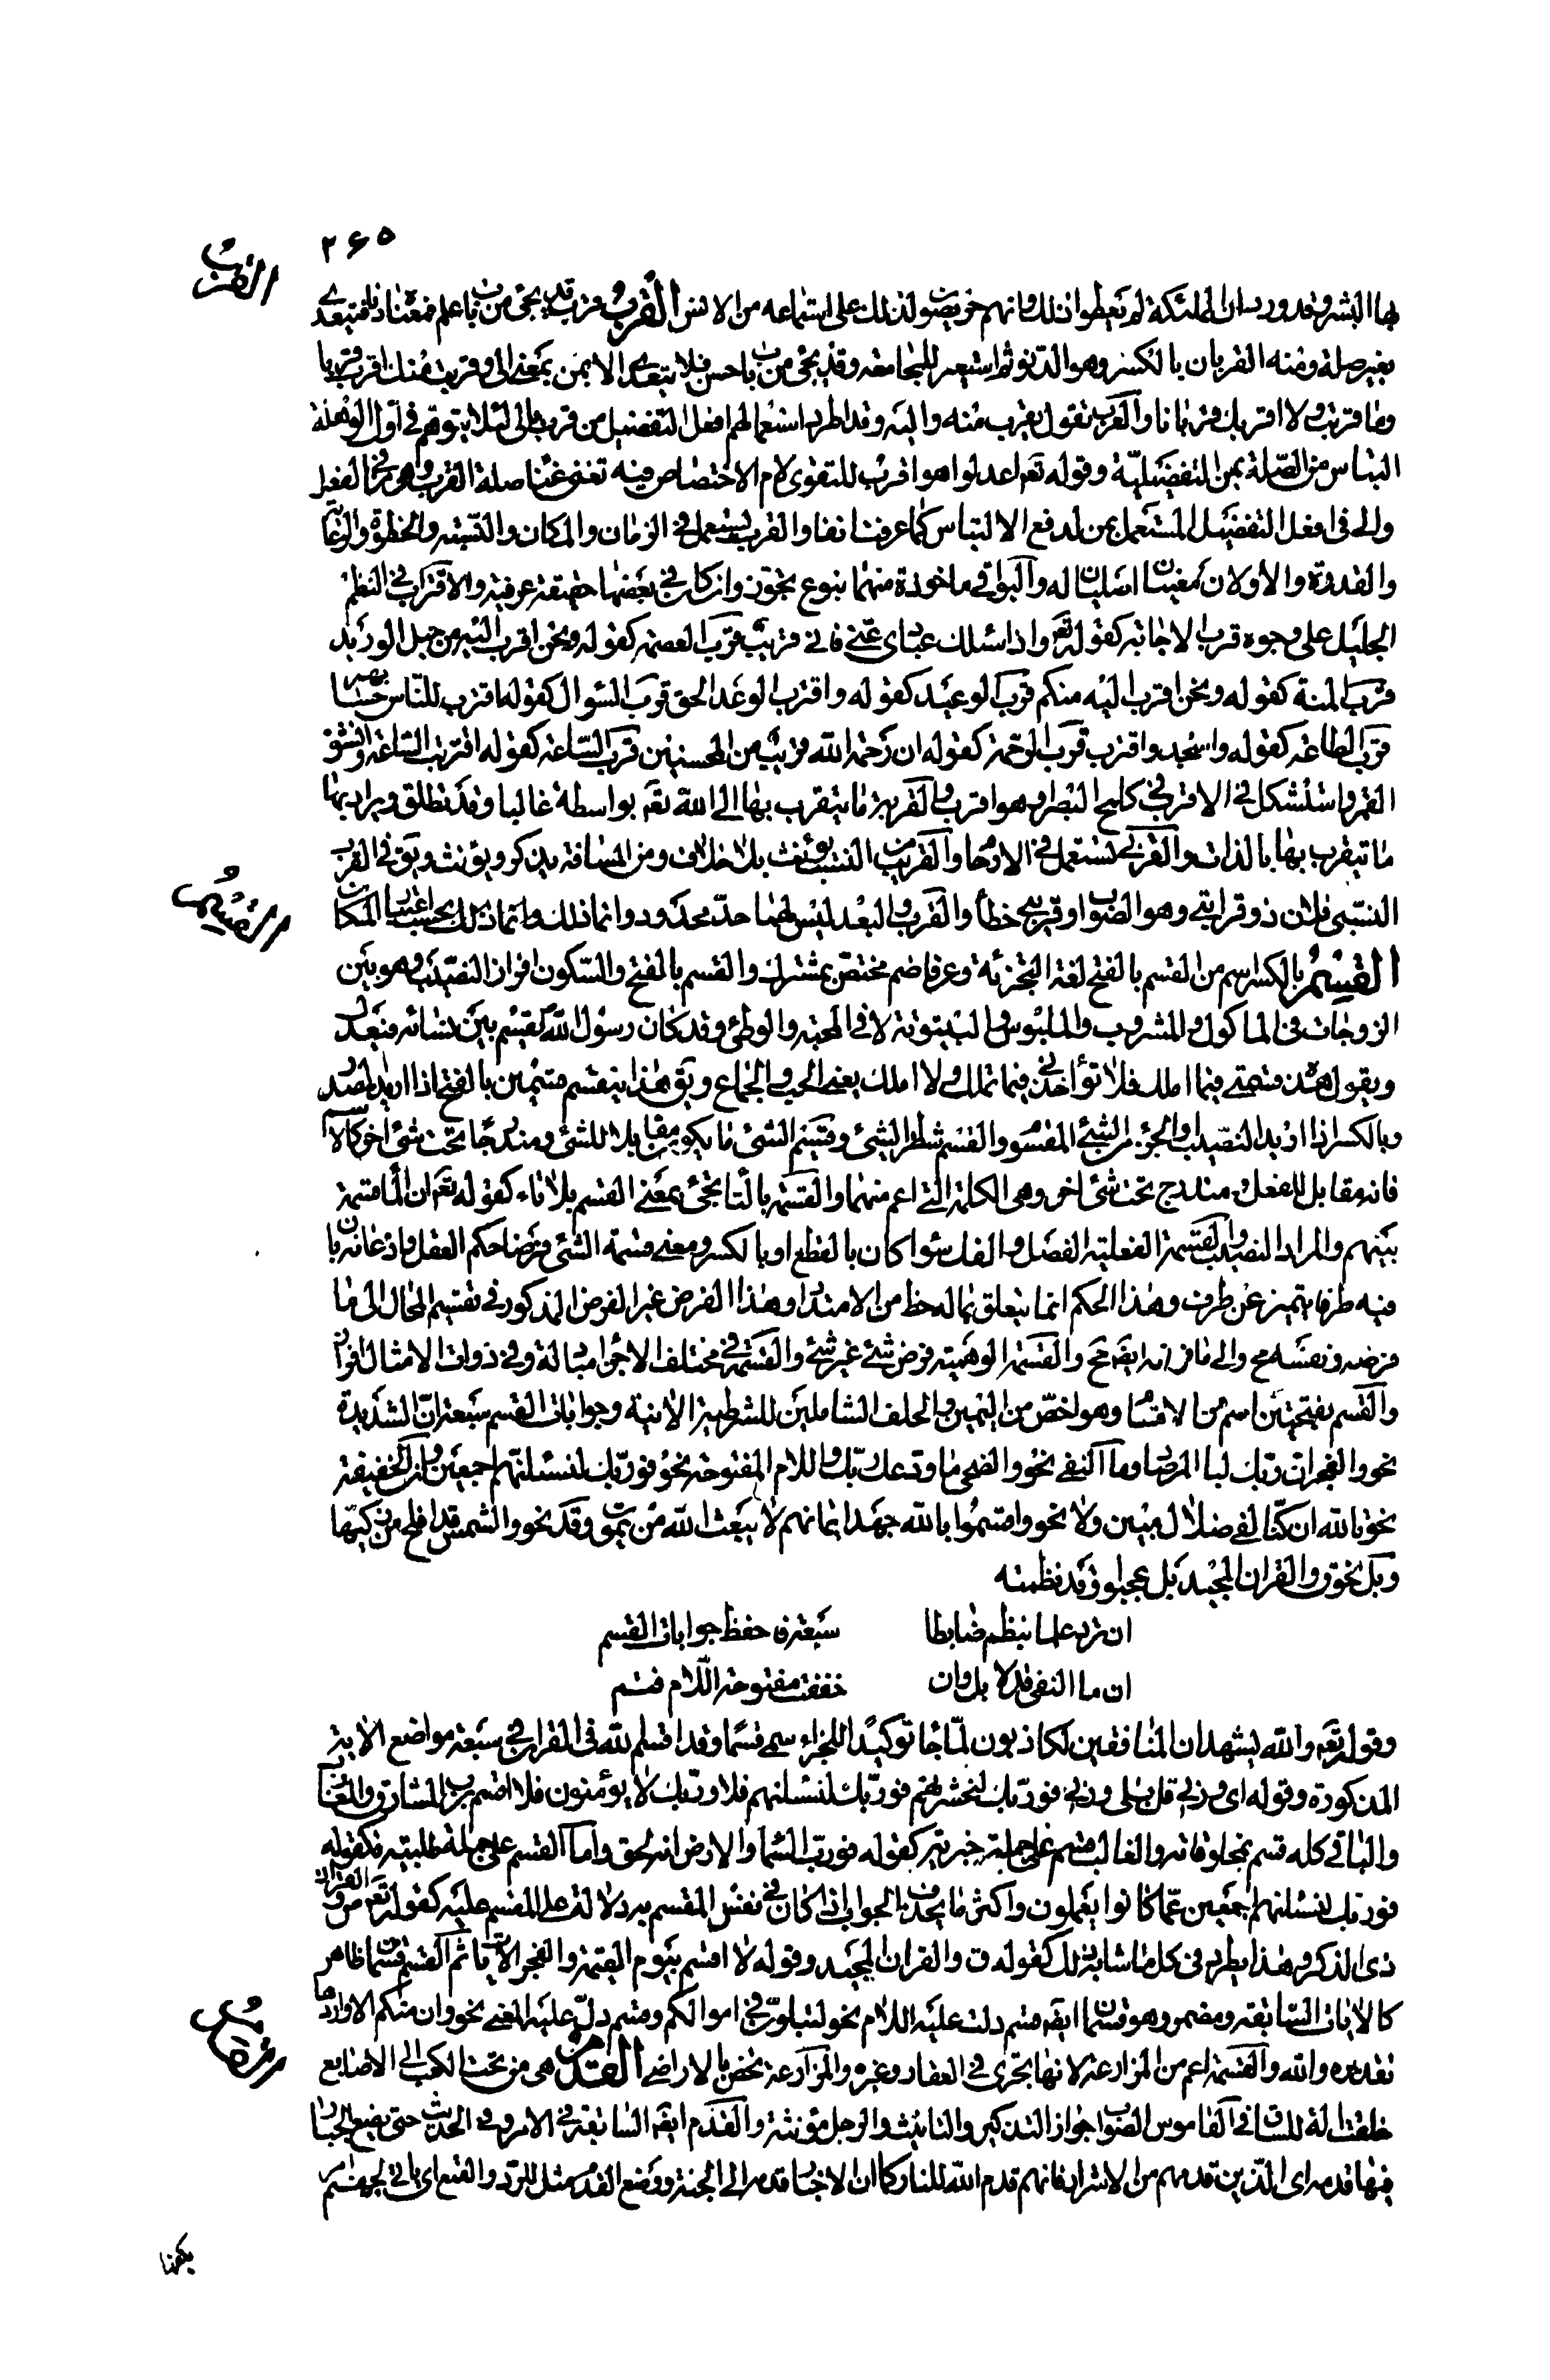 ٢٦٥
القرب
بها البشر وقد ورد ان الملئكة لم يعطوا ذلك وانهم حريصون لذلك على استماعه من الانس القرب قرب قد يجئ من باب علم فمعناه دنا فيتعدى
بغير صلة ومنه القربان بالكسر وهو الدنو ثم استعير للمجامعة وقد يجئ من باب حسن فلا يتعدى الا بمن بمعنى الى وقربت منك اقرب قربا
وما قربت ولا اقربك قربانا والعرب تقول بقرب منه واليه وقد اطرد استعمالهم افعل التفضيل من قرب بالى لئلا يتوهم في اول الوهلة
التباس من الصلة بمن التفضيلية وقوله تعم اعدلوا هو اقرب للتقوى لام الاختصاص فيه تغنى غناء صلة القرب وهي من في الفعل
والى فى افعل التفضيل المستعمل بمن لدفع الالتباس كما عرفت انفا والقرب يستعمل في الزمان والمكان والنسبة والحظوة والرعاية
والقدرة والاولان معنيان اصليان له والبواقي ماخوذة منهما بنوع تجوز وان كان في بعضها حقيقة عرفية والاقتراب في النظم
الجليل على وجوه قرب الاجابة كقوله تعم واذا سئلك عبادى عني فاني قريب قرب العصمة كقوله ونحن اقرب اليه من حبل الوريد
قرب المنة كقوله ونحن اقرب اليه منكم قرب الوعيد كقوله واقترب الوعد الحق قرب السؤال كقوله اقترب للناس حسابهم
قرب الطاعة كقوله واسجد واقترب قرب الرحمة كقوله ان رحمة الله قريب من المحسنين قرب الساعة كقوله اقتربت الساعة وانشق
القمر واستشكل في الاقرب في كلمح البصر او هو اقرب والقربة ما يتقرب بها الى الله تعم بواسطة غالبا وقد تطلق ويراد بها
ما يتقرب بها بالذات والقربى تستعمل في الارحام والقريب من النسب يؤنث بلا خلاف ومن المسافة يذكر ويؤنث ويق في القرب
النسبى فلان ذو قرابتى وهو الصواب او قريبى خطأ والقرب والبعد ليس لهما حد محدود وانما ذلك بحسب اعتبار المكان
القسم
القسم بالكسر اسم من القسم بالفتح لغة التجزئة وعرفا ضم مختص بمشترك والقسم بالفتح والسكون افراز النصيب وهو بين
الزوجات في الماكول والمشروب والملبوس والبيتوتة لا في المحبة والوطئ وقد كان رسول الله يقسم بين نسائه فيعدل
ويقول هذه قسمتى فيما املك فلا تؤاخذني فيما تملك ولا املك يعنى الحب والجماع ويق هذا ينقسم قسمين بالفتح اذا اريد المصدر
وبالكسر اذا اريد النصيب او الجزء من الشئ المقسوم والقسم شطر الشئ وقسيم الشئ ما يكون مقابلا للشئ ومندرجا تحت شئ اخر كالاسم
فانه مقابل للفعل ومندرج تحت شئ اخر وهى الكلمة التي اعم منهما والقسمة بالتا تجئ بمعنى القسم بلا تاء كقوله تعم ان الماء قسمة
بينهم والمراد النصيب والقسمة الفعلية الفصل والفك سواء كان بالقطع او بالكسر ومعنى قسمة الشئ فرضا حكم العقل واذعانه بان
فيه طرفا يتميز عن طرف وهذا الحكم انما يتعلق بما له حظ من الامتداد وهذا الفرض غير الفرض المذكور في تقسيم المحال الى ما
والقسم بفتحتين اسم من الاقسام وهو اخص من اليمين والحلف الشاملين للشرطية الاتية وجوابات القسم سبعة ان الشديدة
نحو والفجر ان ربك لبالمرصاد وما النفى نحو والضحى ما ودعك ربك واللام المفتوحة نحو فوربك لنسئلنهم اجمعين وان الخفيفة
نحو تالله ان كنا لفى ضلال مبين ولا نحو واقسموا بالله جهد ايمانهم لا يبعث الله من يموت وقد نحو والشمس قد افلح من زكيها
وبل نحو ق والقران المجيد بل عجبوا وقد نظمته
ان ترد علما بنظم ضابطا سبعة في حفظ جوابات القسم
ان ما النفى قد لا بل وان خففت مفتوحة اللام فتم
وقوله تعم والله يشهد ان المنافقين لكاذبون لما جاء توكيدا للخبر سمى قسما وقد اقسم الله في القران في سبعة مواضع الاية
المذكورة وقوله اى وربى قل بلى وربى فوربك لنحشرنهم فوربك لنسئلنهم فلا وربك لا يؤمنون فلا اقسم برب المشارق والمغارب
والباقي كله قسم بمخلوقاته والغالب قسم على جملة خبرية كقوله فورب السماء والارض انه لحق واما القسم على جملة طلبية فكقوله
فوربك لنسئلنهم اجمعين عما كانوا يعملون واكثر ما يحذف الجواب اذا كان في نفس المقسم به دلالة على المقسم عليه كقوله تعم ص والقران
ذى الذكر وهذا يطرد فى كل ما شابه ذلك كقوله ق والقران المجيد وقوله لا اقسم بيوم القيمة والفجر الايات ثم القسم قسمان ظاهر
كالايات السابقة ومضمر وهو قسمان ايضا قسم دلت عليه اللام نحو لتبلون في اموالكم وقسم دل عليه المعنى نحو وان منكم الا واردها
القدم
تقديره والله والقسمة اعم من المزارعة لانها تجرى في العقار وغيره والمزارعة تختص بالاراضى القدم هى من تحت الكعب الى الاصابع
خلقت الة للساق وفى القاموس الصواب جواز التذكير والتانيث والرجل مؤنثة والقدم ايضا السابقة في الامر وفي الحديث حتى يضع الجبار
فيها قدمه اى الذين قدمهم من الاشرار فانهم قدم الله للنار كما ان الاخيار قدمه الى الجنة ووضع القدم مثل للردع والقمع اى ياتى لجهنم امر
يكفها